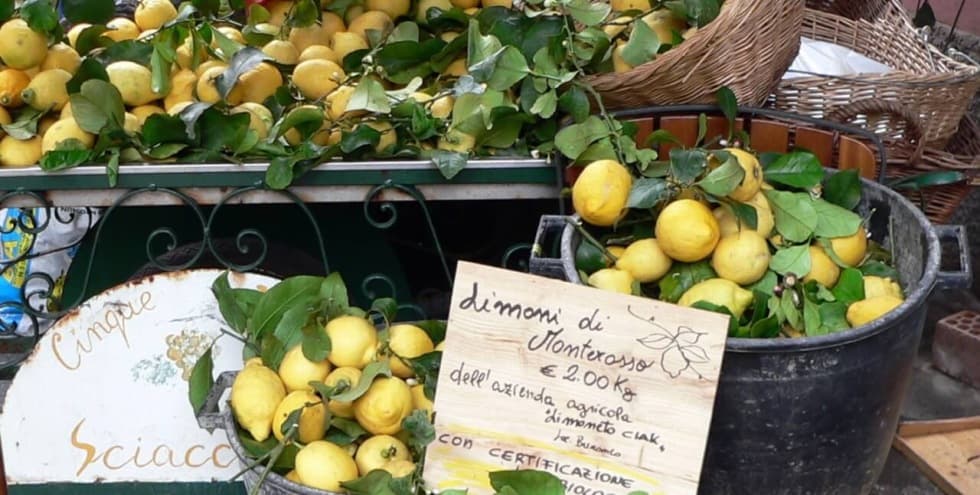 Cinque
Sciacc
Limoni di
Monterosso
€ 2.00 Kg
dell'azienda agricola
con CERTIFICAZIONE